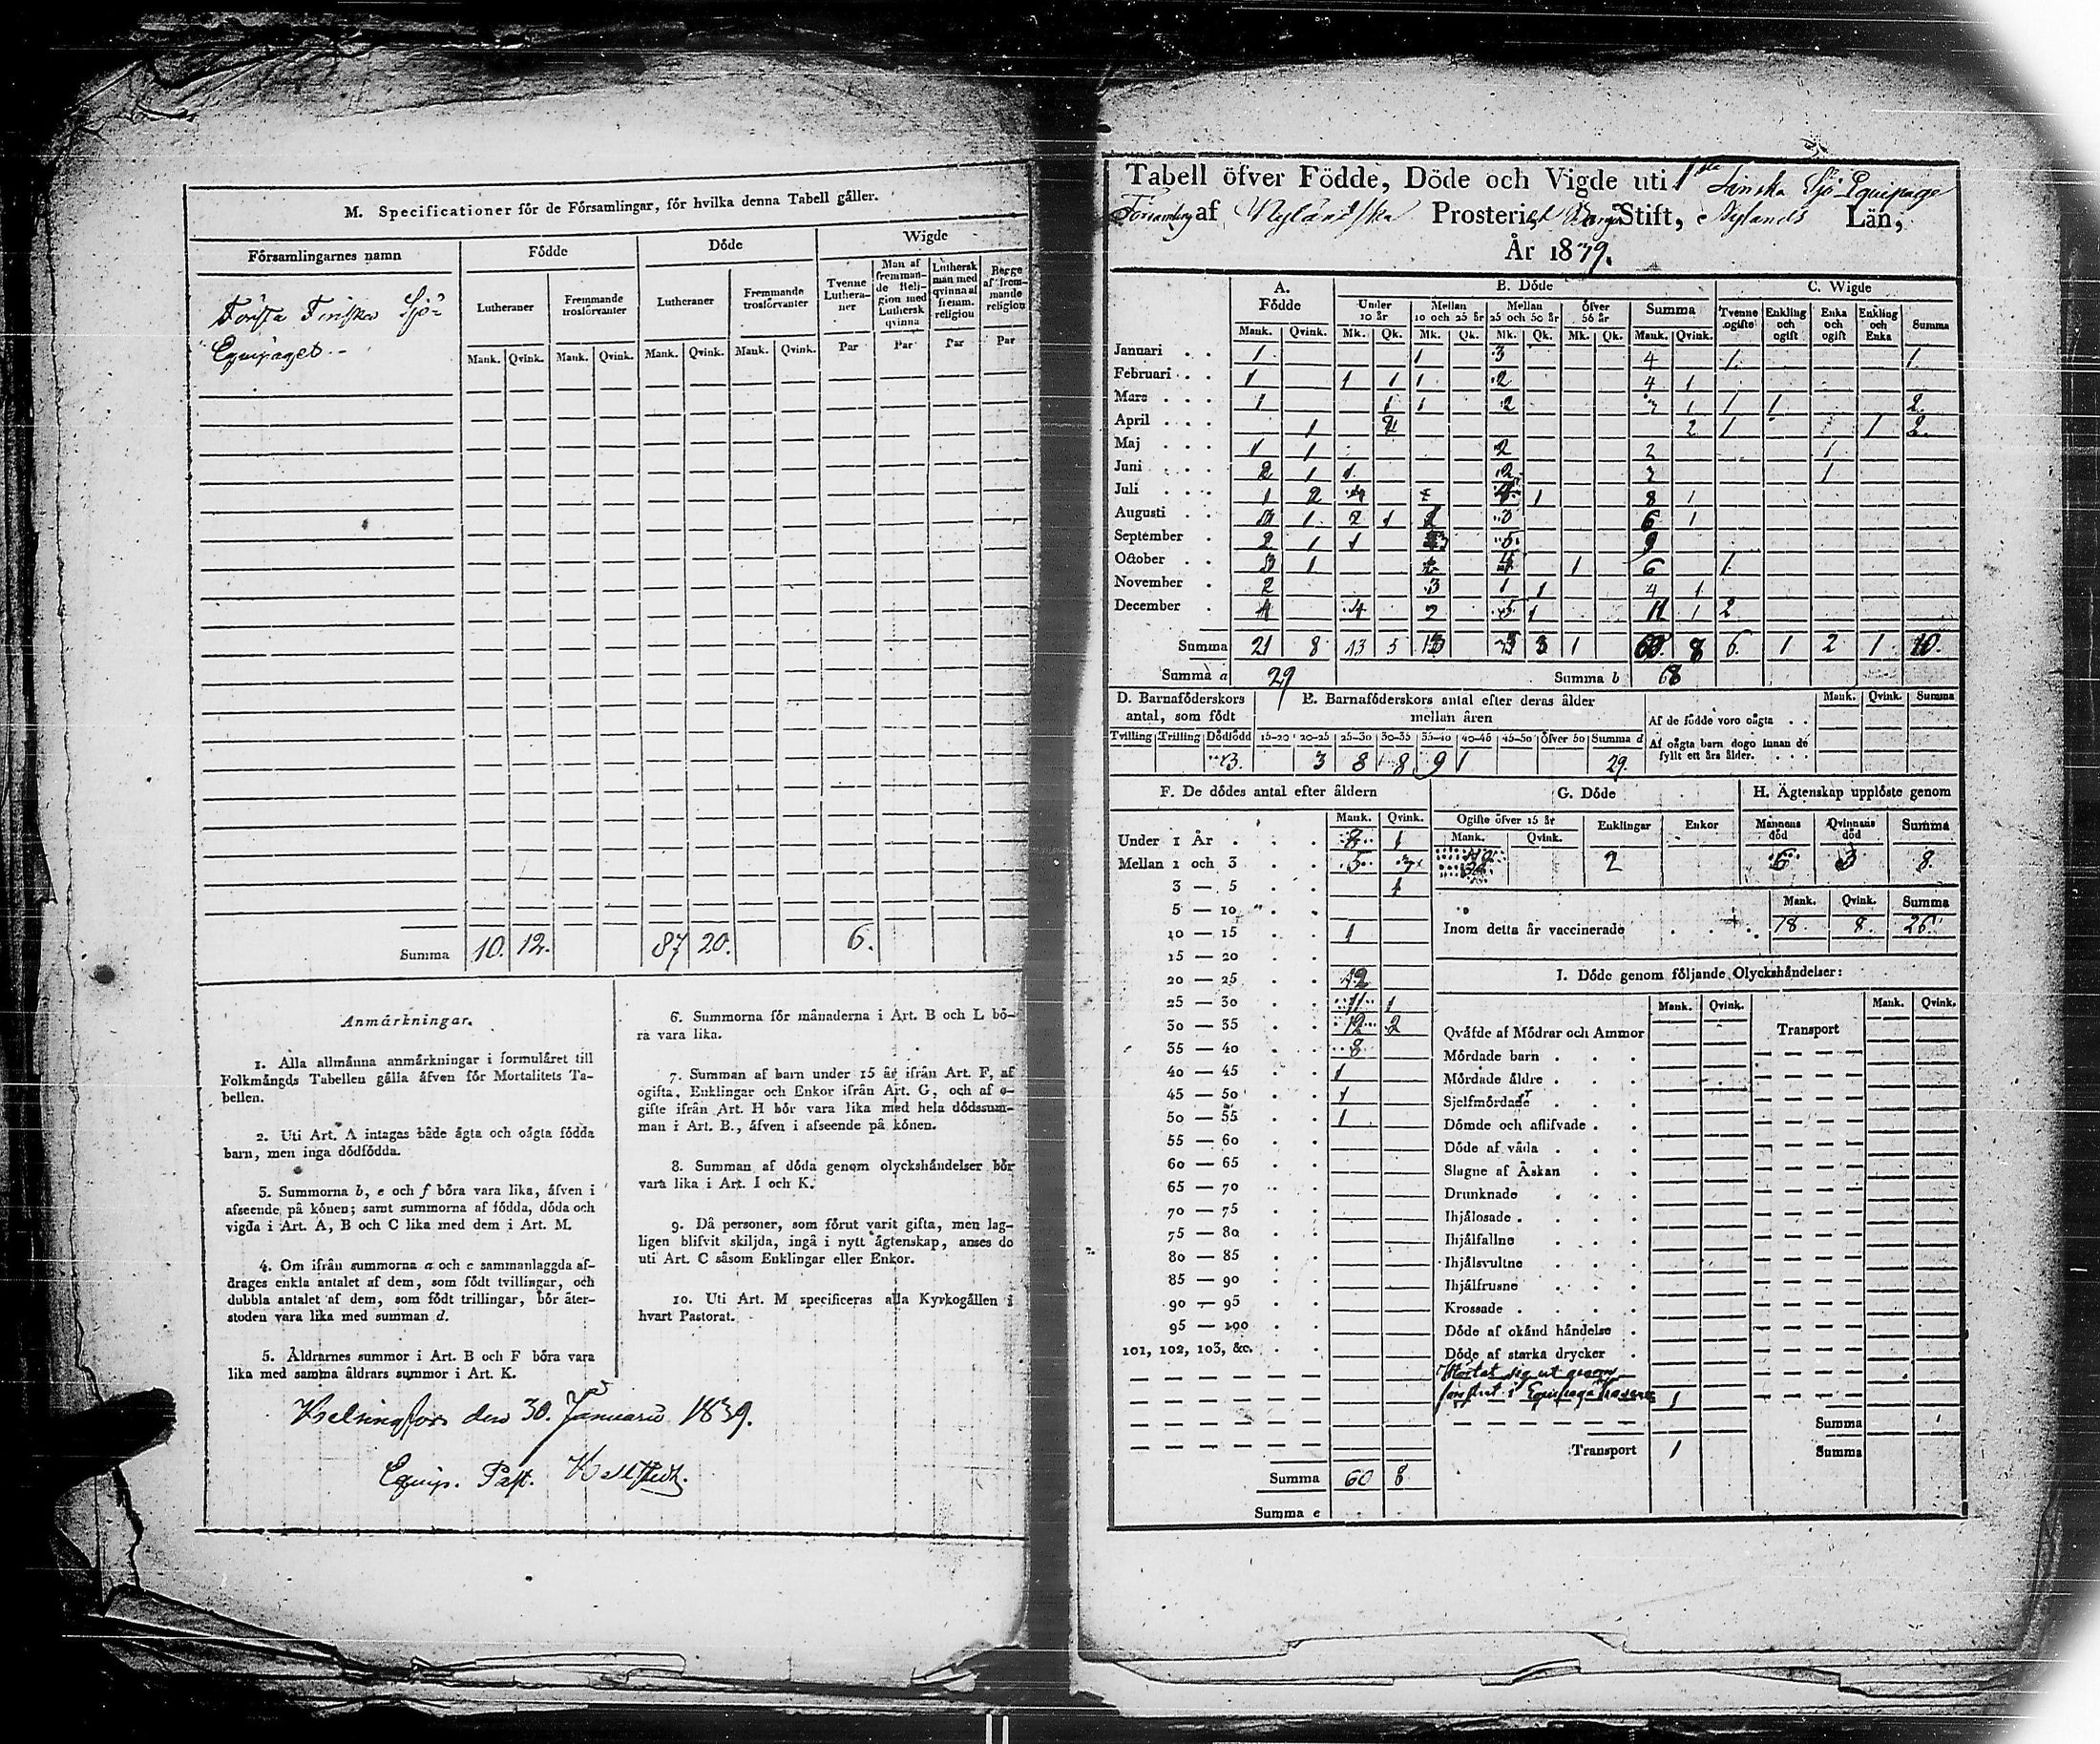 M. Specificationer för de Församlingar, för hvilka denna Tabell gäller.
Församlingarnes namn
Födde
Döde
Wigde
Lutheraner
Fremmande trosförvanter
Lutheraner
Fremmande trosförvanter
Tvenne Lutheraner
Man af fremmande Religion med Luthersk qvinna
Luthersk man med qvinna af fremm. religion
Begge af fremmande religion
Mank. Qvink. Mank. Qvink. Mank. Qvink. Mank. Qvink. Par Par Par Par
Första Finska Sjö-
Equipaget.-
Summa 10. 12. 87 20. 6.
Anmärkningar.
1. Alla allmänna anmärkningar i formuläret till
Folkmängds Tabellen gälla äfven för Mortalitets Ta-
bellen.
2. Uti Art. A intagas både ägta och oägta födda
barn, men inga dödfödda.
3. Summorna b, e och f böra vara lika, äfven i
afseende på könen; samt summorna af födda, döda och
vigda i Art. A, B och C lika med dem i Art. M.
4. Om ifrån summorna a och c sammanlaggda af-
drages enkla antalet af dem, som födt tvillingar, och
dubbla antalet af dem, som födt trillingar, bör åter-
stoden vara lika med summan d.
5. Åldrarnes summor i Art. B och F böra vara
lika med samma åldrars summor i Art. K.
6. Summorna för månaderna i Art. B och L bö-
ra vara lika.
7. Summan af barn under 15 år ifrån Art. F, af
ogifta, Enklingar och Enkor ifrån Art. G, och af o-
gifte ifrån Art. H bör vara lika med hela dödssum-
man i Art. B., äfven i afseende på könen.
8. Summan af döda genom olyckshändelser bör
vara lika i Art. I och K.
9. Då personer, som förut varit gifta, men lag-
ligen blifvit skiljda, ingå i nytt ägtenskap, anses de
uti Art. C såsom Enklingar eller Enkor.
10. Uti Art. M specificeras alla Kyrkogällen i
hvart Pastorat.
Helsingfors den 30. Januarii 1839.
Equip. Past.
Tabell öfver Födde, Döde och Vigde uti 1sta Finska Sjö Equipage
Församling af Nyländska Prosteri, Borgå Stift, Nylands Län,
År 1839.
A. Födde
B. Döde
C. Wigde
Under 10 år
Mellan 10 och 25 år
Mellan 25 och 50 år
Öfver 56 år
Summa
Tvenne ogifte
Enkling och ogift
Enka och ogift
Enkling och Enka
Summa
Mank. Qvink. Mk. Qk. Mk. Qk. Mk. Qk. Mk. Qk. Mank. Qvink.
Januari 1 1 3 4 1. 1.
Februari 1 1 1 1 2 4 1
Mars 1 1 1 2 3 1 1 1 2.
April 1 2 2 1 1 2.
Maj 1 1 2 2 1
Juni 2 1 1 2 3 1
Juli 1 2 1 8 1
Augusti 1 2 1 3 6 1
September 2 1 1 5 9
October 3 1 1 6 1.
November 2 3 1 1 4 1
December 4 2 5 1 11 1 2
Summa 21 8 13 5 13 3 1 60 8 6. 1 2 1 10.
Summa a 29 Summa b 68
D. Barnaföderskors antal, som födt
E. Barnaföderskors antal efter deras ålder mellan åren
Tvilling Trilling Dödfödd 15-20 20-25 25-30 30-35 35-40 40-45 45-50 öfver 50 Summa d
3. 3 8 8 9 1 29.
Mank. Qvink. Summa
Af de födde voro oägta
Af oägta barn dogo innan de
fyllt ett års ålder.
F. De dödes antal efter åldern
Mank. Qvink.
Under 1 År 8 1
Mellan 1 och 3 5 3
3 — 5 1
5 — 10
10 — 15 1
15 — 20
20 — 25 12
25 — 30 11 1
30 — 35 12 2
35 — 40 8
40 — 45 1
45 — 50 1
50 — 55 1
55 — 60
60 — 65
65 — 70
70 — 75
75 — 80
80 — 85
85 — 90
90 — 95
95 — 100
101, 102, 103, &c.
Summa 60 8
Summa e
G. Döde
Ogifte öfver 15 år
Enklingar
Enkor
Mank. Qvink.
2
H. Ägtenskap upplöste genom
Mannens död
Qvinnans död
Summa
3 8.
Mank. Qvink. Summa
Inom detta år vaccinerade 18. 8. 26.
I. Döde genom följande Olyckshändelser:
Mank. Qvink. Mank. Qvink.
Qväfde af Mödrar och Ammor
Transport
Mördade barn
Mördade äldre
Sjelfmördade
Dömde och aflifvade
Döde af våda
Slagne af Åskan
Drunknade
Ihjälosade
Ihjälfallne
Ihjälsvultne
Ihjälfrusne
Krossade
Döde af okänd händelse
Döde af starka drycker
Störtat sig ut genom
fönstret i Equipage Kasern 1
Summa
Transport 1
Summa